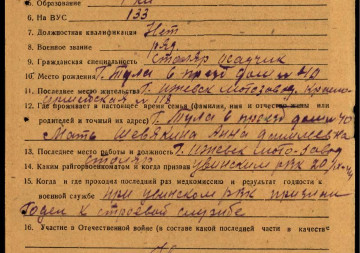 5. Образование
6. На ВУС 133
7. Должностная квалификация Нет
8. Военное звание ряд.
9. Гражданская специальность столяр
10. Место рождения Г. Тула 6 проезд дом № 40
11. Последнее место жительства Г. Ижевск Мотозавод
№ 113
12. Где проживает в настоящее время семья (фамилия, имя и отчество жены или
родителей и точный их адрес) Г. Тула 6 проезд дом № 40
Мать Шевякина Анна
13. Последнее место работы и должность Г. Ижевск Мото-завод
столяр
14. Каким райгорвоенкоматом и когда призван Увинским рвк
15. Когда и где проходил последний раз медкомиссию и результат годности к
военной службе при Увинском рвк признан
Годен к строевой службе
16. Участие в Отечественной войне (в составе какой последней части и в качестве